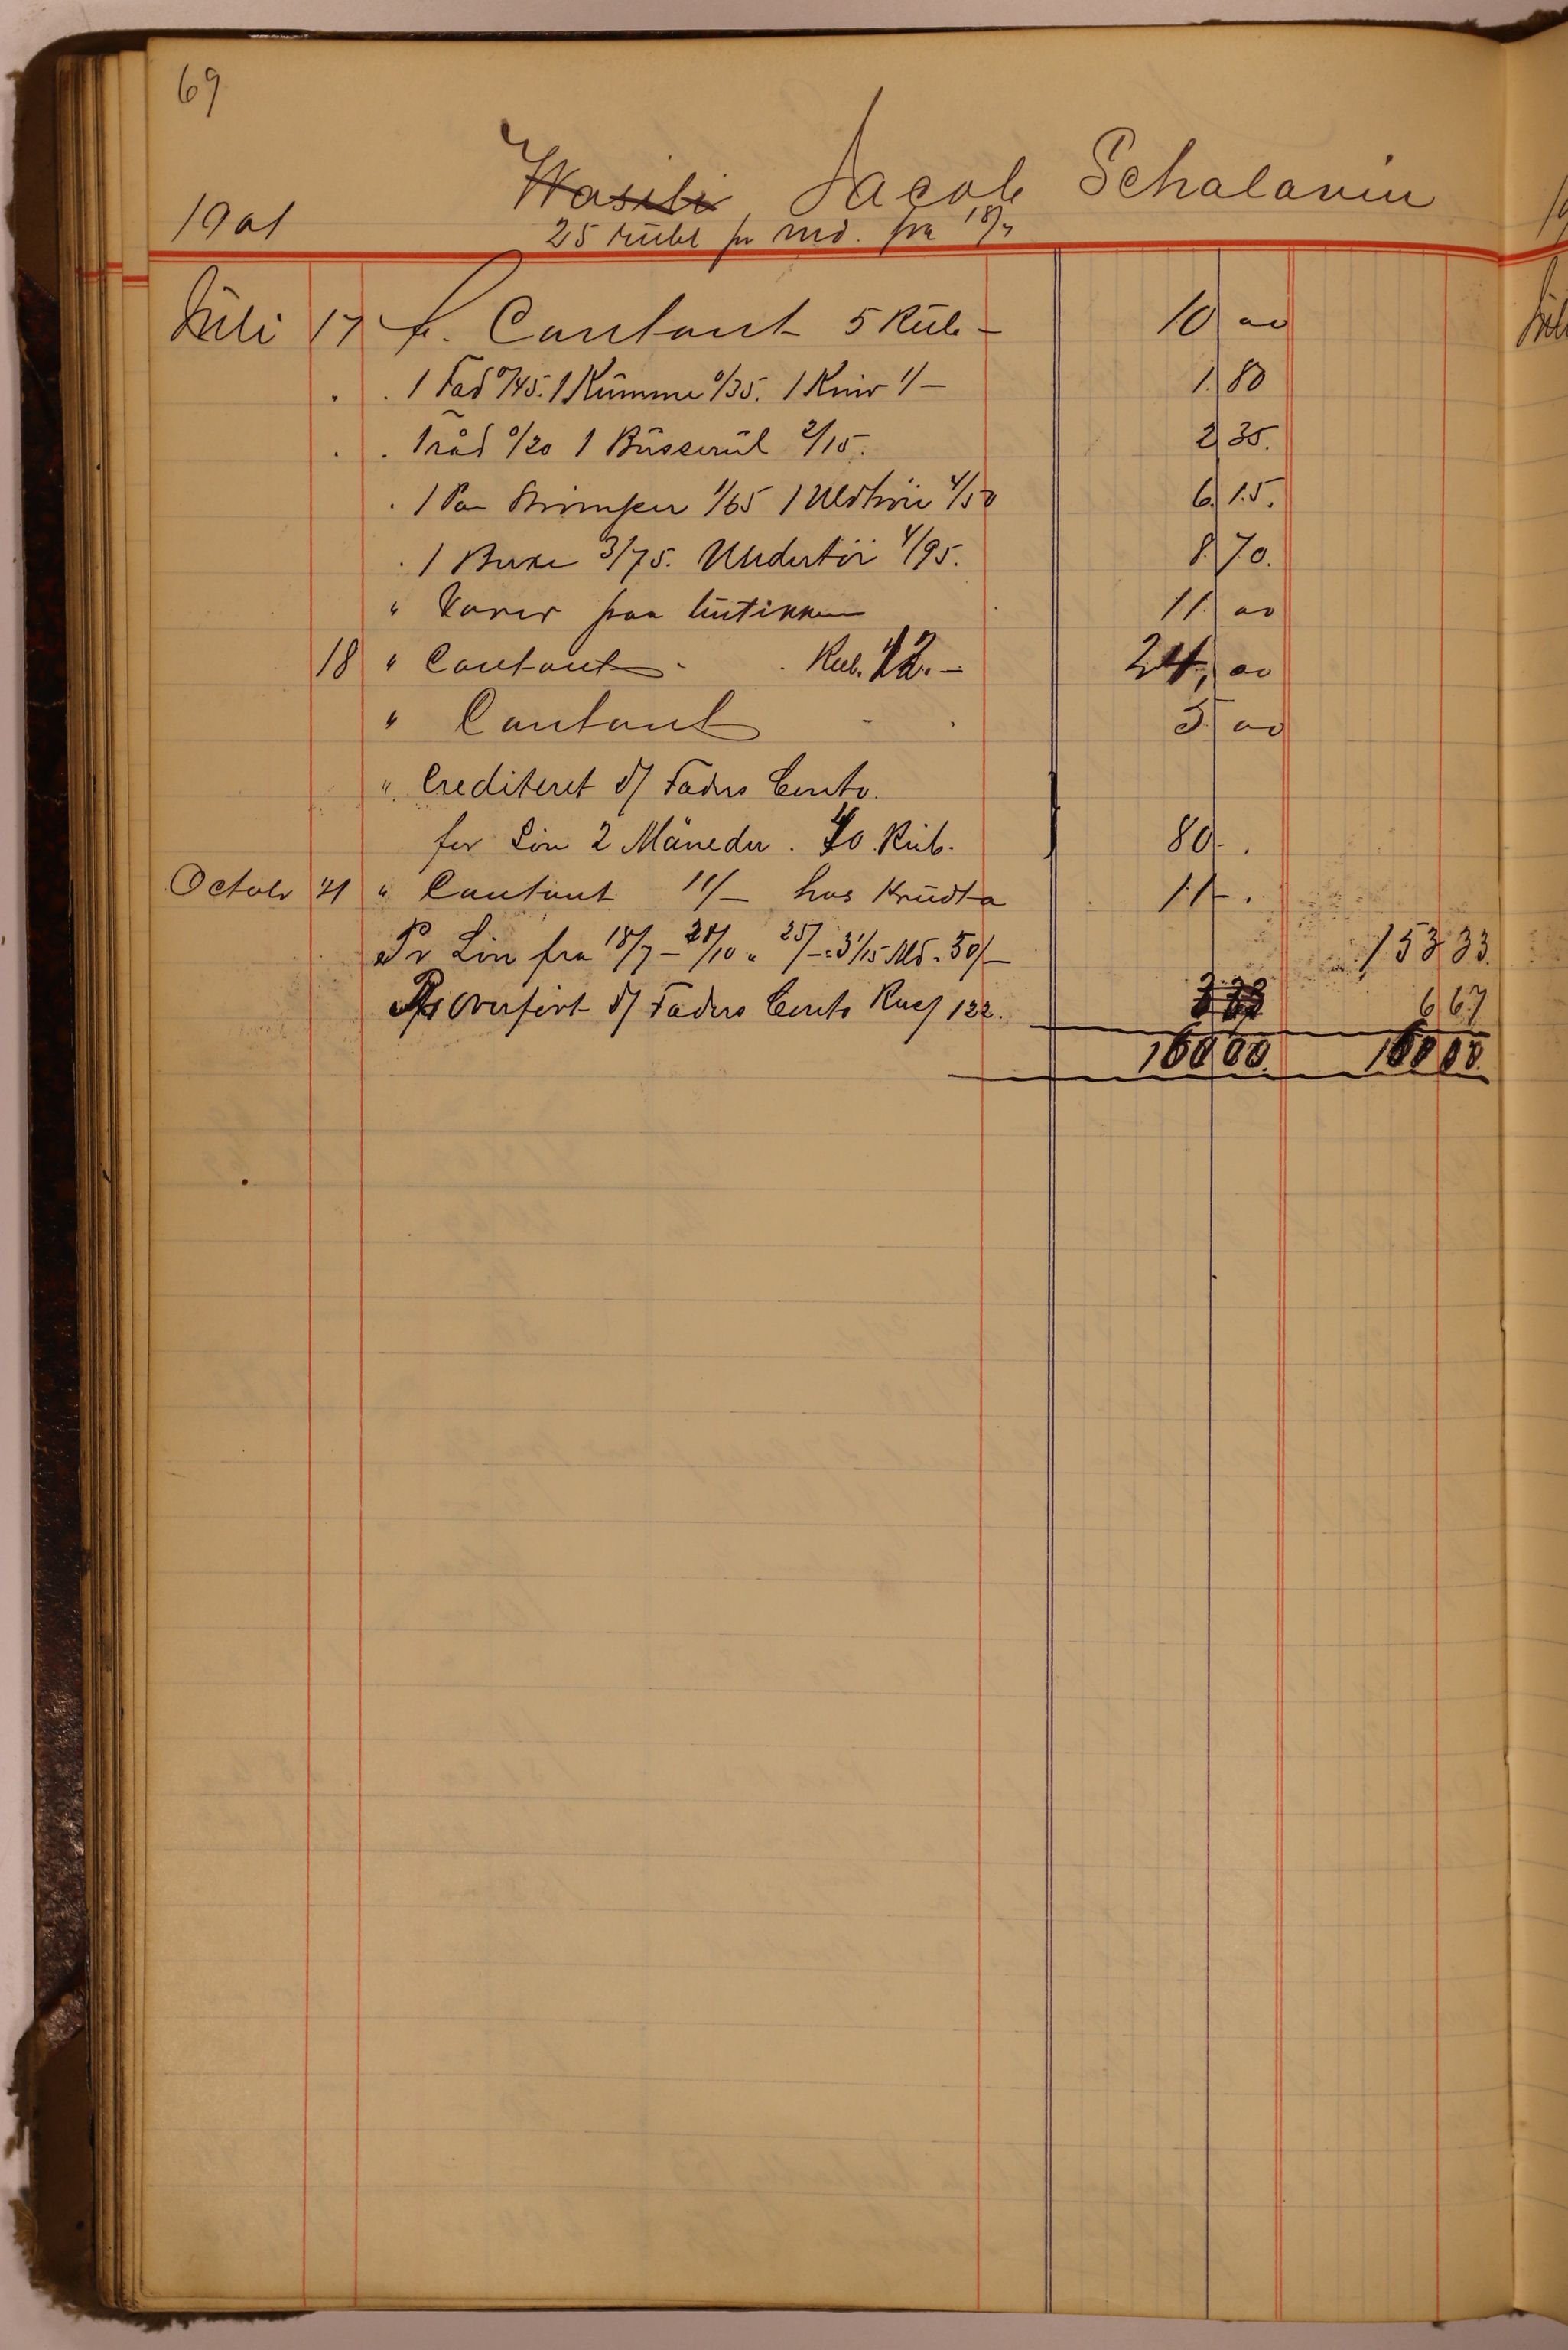 69
Wasili Jacob Schalavin
1901
25 Rubl pr md. fra 18/7
Juli 17 fr. Contant 5 Rub - 10 00
. . 1 Fad 0/45. 1 Kumme 0/35. 1 Kniv 1/- 1.80
. . Tråd 0/20 1 Busserul 2/15. 2 35.
. 1 Par Strömper 1/65 1 Uldtröie 4/50 6.15.
. 1 Buxe 3/75. Undertöi 4/95. 8.70.
" Varer fra butikken 11.00
18 " Contant . Rub. 12. - 24,00
" Contant - . 5.00
". Crediteret d/ Faders Conto.
for Lön 2 Måneder. 40. Rub. 80 - .
Octobr 21 " Contant 11/- hos 11 - .
Pr Lön fra 18/7 - 20/10 a 25/- = 3 1/15 Md. 50/- 153 33.
Pr overfört d/ Faders Conto 122. 6 67
160 00. 160 00.